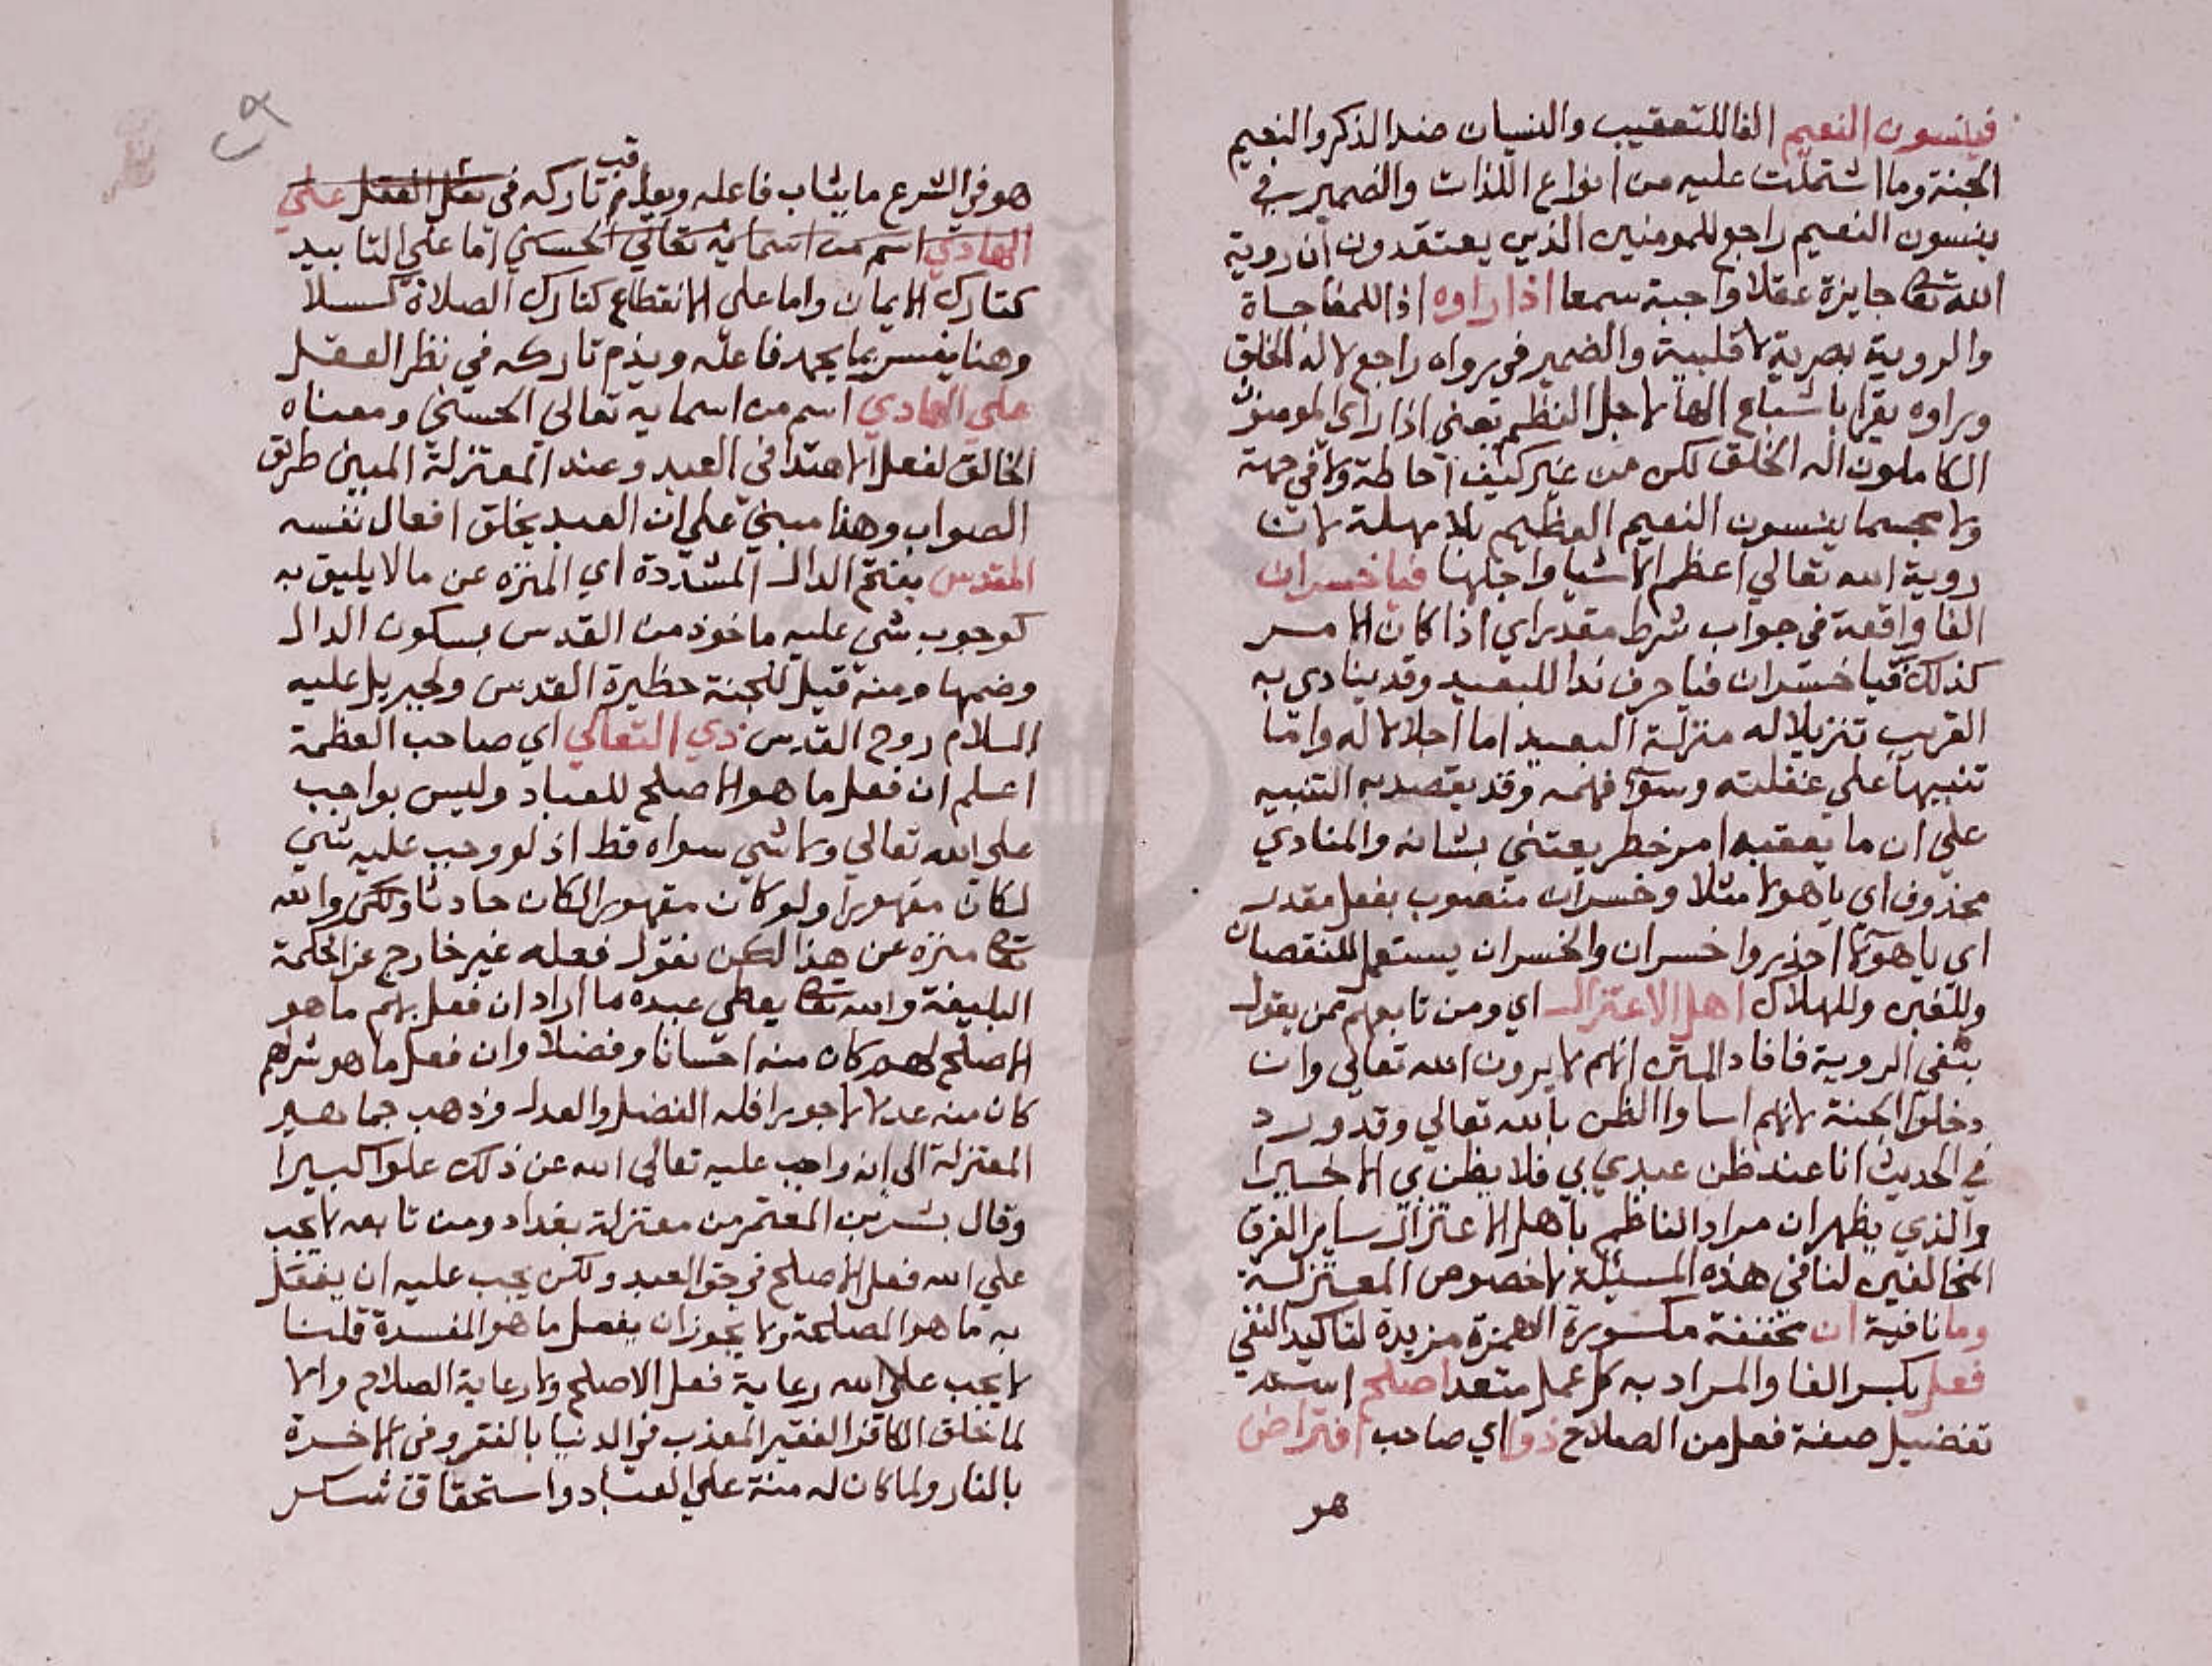 فينسون النعيم الفا للتعقيب والنسيان ضد الذكر والنعيم
الجنة وما اشتملت عليه من انواع اللذات والضمير في
ينسون النعيم راجع للمومنين الذين يعتقدون ان روية
الله تعا جايزة عقلا واجبة سمعا اذا راوه اذا للمفاجاة
والروية بصرية لا قلبية والضمير في رواه راجع لاله الخلق
وراوه يقرا باشباع الها لاجل النظم يعني اذا راى المومنون
الكاملون اله الخلق لكن من غير كيف احاطة ولا في جهة
ولا مجسما ينسون النعيم العظيم بلا مهلة لان
روية الله تعالي اعظم الاشيا واجلها فيا خسران
الفا واقعة في جواب شرط مقدر اي اذا كان الامر
كذلك فيا خسران فيا حرف ندا للبعيد وقد ينادي به
القريب تنزيلا له منزلة البعيد اما اجلالا له واما
تنبيها علي غفلته وسوء فهمه وقد يقصد به التنبيه
علي ان ما يعقبه امر خطر يعتني بشانه والمنادي
محذوف اي يا هولا مثلا وخسران منصوب بفعل مقدر
اي يا هولا احذروا خسران والخسران يستعمل للنقصان
وللغبن وللهلاك اهل الاعتزال اي ومن تابعهم ممن يقول
بنفي الروية فافاد المتن انهم لا يرون الله تعالي وان
دخلوا الجنة لانهم اساوا الظن بالله تعالي وقد ورد
في الحديث انا عند ظن عبدي بي فلا يظن بي الا خيرا
والذي يظهر ان مراد الناظم باهل الاعتزال ساير الفرق
المخالفين لنا في هذه المسئلة لا خصوص المعتزلة
وما نافية ان مخففة مكسورة الهمزة مزيدة لتاكيد النفي
فعل بكسر الفا والمراد به كل عمل متعد اصلح اسم
تفضيل صفة فعل من الصلاح ذو اي صاحب افتراض
هو
هو في الشرع ما يثاب فاعله ويعاقب تاركه في نظر العقل علي
الهادي اسم من اسمايه تعالي الحسني اما علي التابيد
كتارك الايمان واما علي الانقطاع كتارك الصلاة كسلا
وهنا يفسر بما يحمد فاعله ويذم تاركه في نظر العقل
علي الهادي اسم من اسمايه تعالي الحسني ومعناه
الخالق لفعل الاهتدا في العبد وعند المعتزلة المبين طريق
الصواب وهذا مبني علي ان العبد يخلق افعال نفسه
المقدس بفتح الدال المشددة اي المنزه عن ما لا يليق به
كوجوب شي عليه ماخوذ من القدس بسكون الدال
وضمها ومنه قيل للجنة حظيرة القدس ولجبريل عليه
السلام روح القدس ذي التعالي اي صاحب العظمة
اعلم ان فعل ما هو الاصلح للعباد وليس بواجب
علي الله تعالي ولا شي سواه قط اذ لو وجب عليه شي
لكان مقهورا ولو كان مقهورا لكان حادثا ولكن والله
تعا منزه عن هذا لكن نقول فعله غير خارج عن الحكمة
البليغة والله تعا يعطي عبده ما اراد ان فعل بهم ما هو
الاصلح لهم كان منه احسانا وفضلا وان فعل ما هو شر لهم
كان منه عدلا لا جورا فله الفضل والعدل وذهب جماهير
المعتزلة الي انه واجب عليه تعالي الله عن ذلك علوا كبيرا
وقال بشر بن المعتمر من معتزلة بغداد ومن تابعه لا يجب
علي الله فعل الاصلح في حق العبد ولكن يجب عليه ان يفعل
به ما هو المصلحة ولا يجوز ان يفعل ما هو المفسدة قلنا
لا يجب علي الله رعاية فعل الاصلح ولا رعاية الصلاح والا
لما خلق الكافر الفقير المعذب في الدنيا بالفقر وفي الاخرة
بالنار ولما كان له منة علي العباد واستحقاق شكر